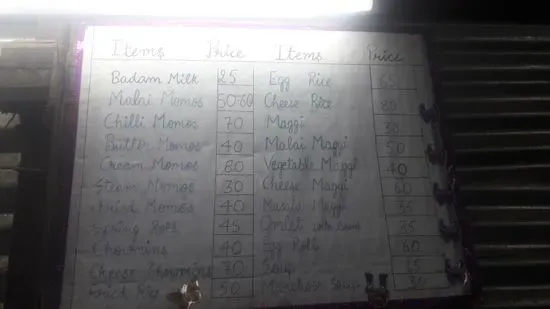 Items Price Items Price
Badam Milk 25 Egg Rice 65
Malai Momos 50-60 Cheese Rice 80
Chilli Momos 70 Maggi 30
Butter Momos 40 Malai Maggi 50
Cream Momos 80 Vegetable Maggi 40
Steam Momos 30 Cheese Maggi 60
Fried Momos 40 Masala Maggi 35
Spring Rolls 45 Omlet with 35
Chowmins 40 Egg Rolls 60
Cheese Chowmins 70 Soup 25
Fried Rice 50 Manchow Soup 30